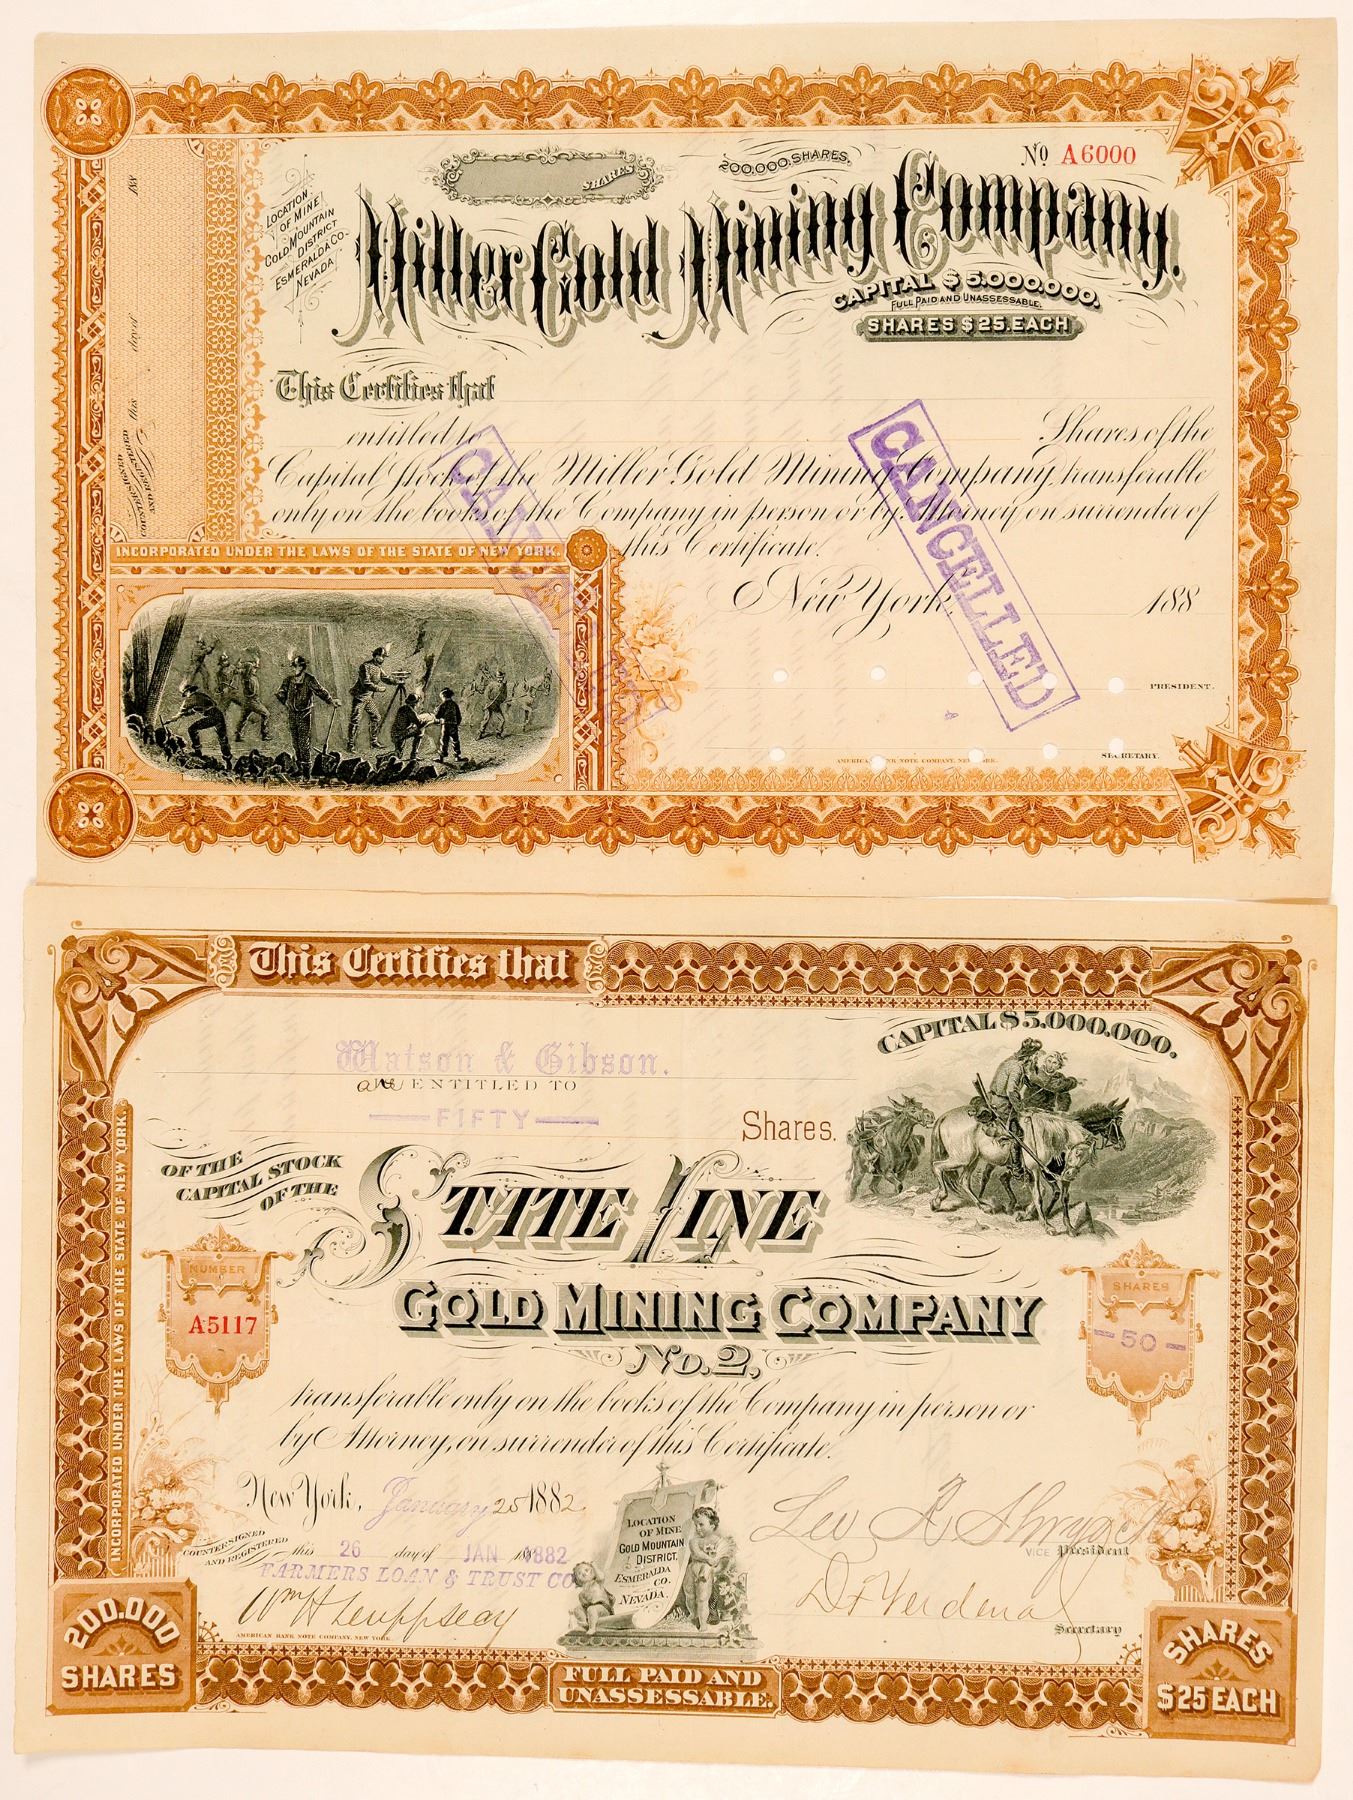 No A6000
200.000.SHARES.
SHARES
LOCATION
OF MINE
GOLD MOUNTAIN
DISTRICT
ESMERALDA CO.
NEVADA.
Miller Gold Mining Company.
CAPITAL $5.000.000.
FULL PAID AND UNASSESSABLE.
SHARES $25.EACH
This Certifies that
entitled to Shares of the
Capital Stock of the Miller Gold Mining Company, transferable
only on the books of the Company in person or by Attorney on surrender of
this Certificate.
New York, 188
CANCELLED
CANCELLED
PRESIDENT.
SECRETARY.
AMERICAN BANK NOTE COMPANY, NEW YORK.
COUNTERSIGNED
AND REGISTERED
this day of 188
INCORPORATED UNDER THE LAWS OF THE STATE OF NEW YORK.
This Certifies that
CAPITAL $5.000.000.
Watson & Gibson.
are ENTITLED TO
FIFTY
Shares.
OF THE
CAPITAL STOCK
OF THE
STATE LINE
GOLD MINING COMPANY
No. 2,
NUMBER
A5117
SHARES
50
transferable only on the books of the Company in person or
by Attorney, on surrender of this Certificate.
New York, January 25 1882
COUNTERSIGNED
AND REGISTERED
this 26 day of JAN 1882
FARMERS LOAN & TRUST CO
AMERICAN BANK NOTE COMPANY, NEW YORK.
LOCATION
OF MINE
GOLD MOUNTAIN
DISTRICT,
ESMERALDA
CO.
NEVADA.
VICE President
Secretary
INCORPORATED UNDER THE LAWS OF THE STATE OF NEW YORK.
200.000
SHARES
FULL PAID AND
UNASSESSABLE.
SHARES
$25 EACH